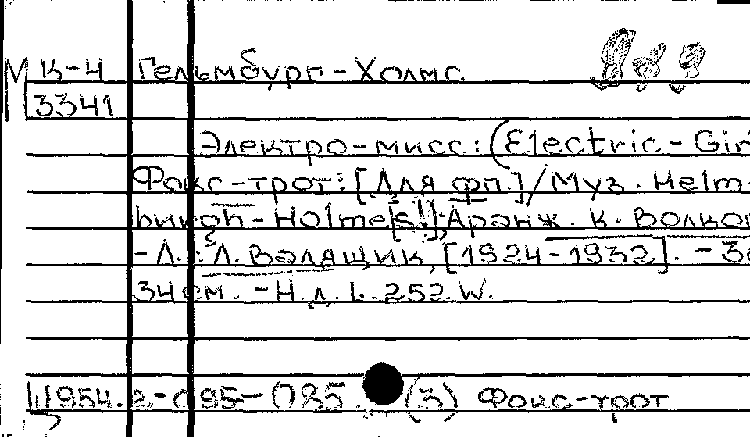 М К-4 Гельмбург-Холмс.
3341
Электро-мисс: (Electric-Girl
Фокс-трот: [Для фп.] / Муз. Helm-
burgh-Holme[s!]; Аранж. К. Волко
-Л.: Л. Волащик, [1924-1932]. - 3с
34 см. - Н.д. L. 252 W.
954.2.- 095- 085 (3) Фокс-трот